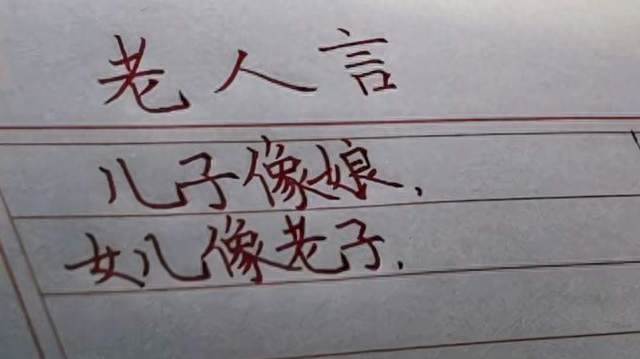 老人言
儿子像娘,
女儿像老子.